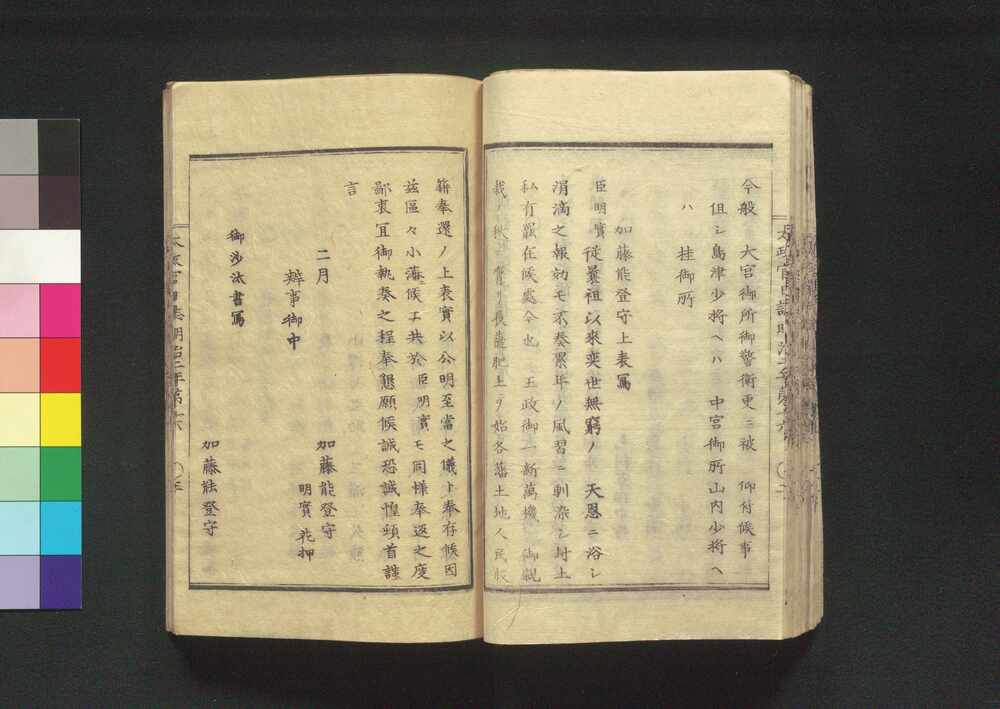 今般　大宮御所御警衛更ニ被　仰付候事
但シ島津少将ヘハ　中宮御所山内少将ヘ
ハ　桂御所
加藤能登守上表寫
臣明實從曩祖以來奕世無窮ノ　天恩ニ浴シ
涓滴之報効モ不奏累年ノ風習ニ馴染シ封土
私有罷在候處今也　王政御一新萬機　御親
裁ノ　薩長肥土ヲ始各藩土地人民版
籍奉還ノ上表實以公明至當之儀ト奉存候因
茲區々小藩候エ共於臣明實モ同樣奉返之度
鄙衷冝御執奏之程奉懇願候誠恐誠惶頓首謹
言
二月　加藤能登守
明實　花押
辨事御中
御沙汰書寫
加藤能登守
太政官日誌明治二年第十六